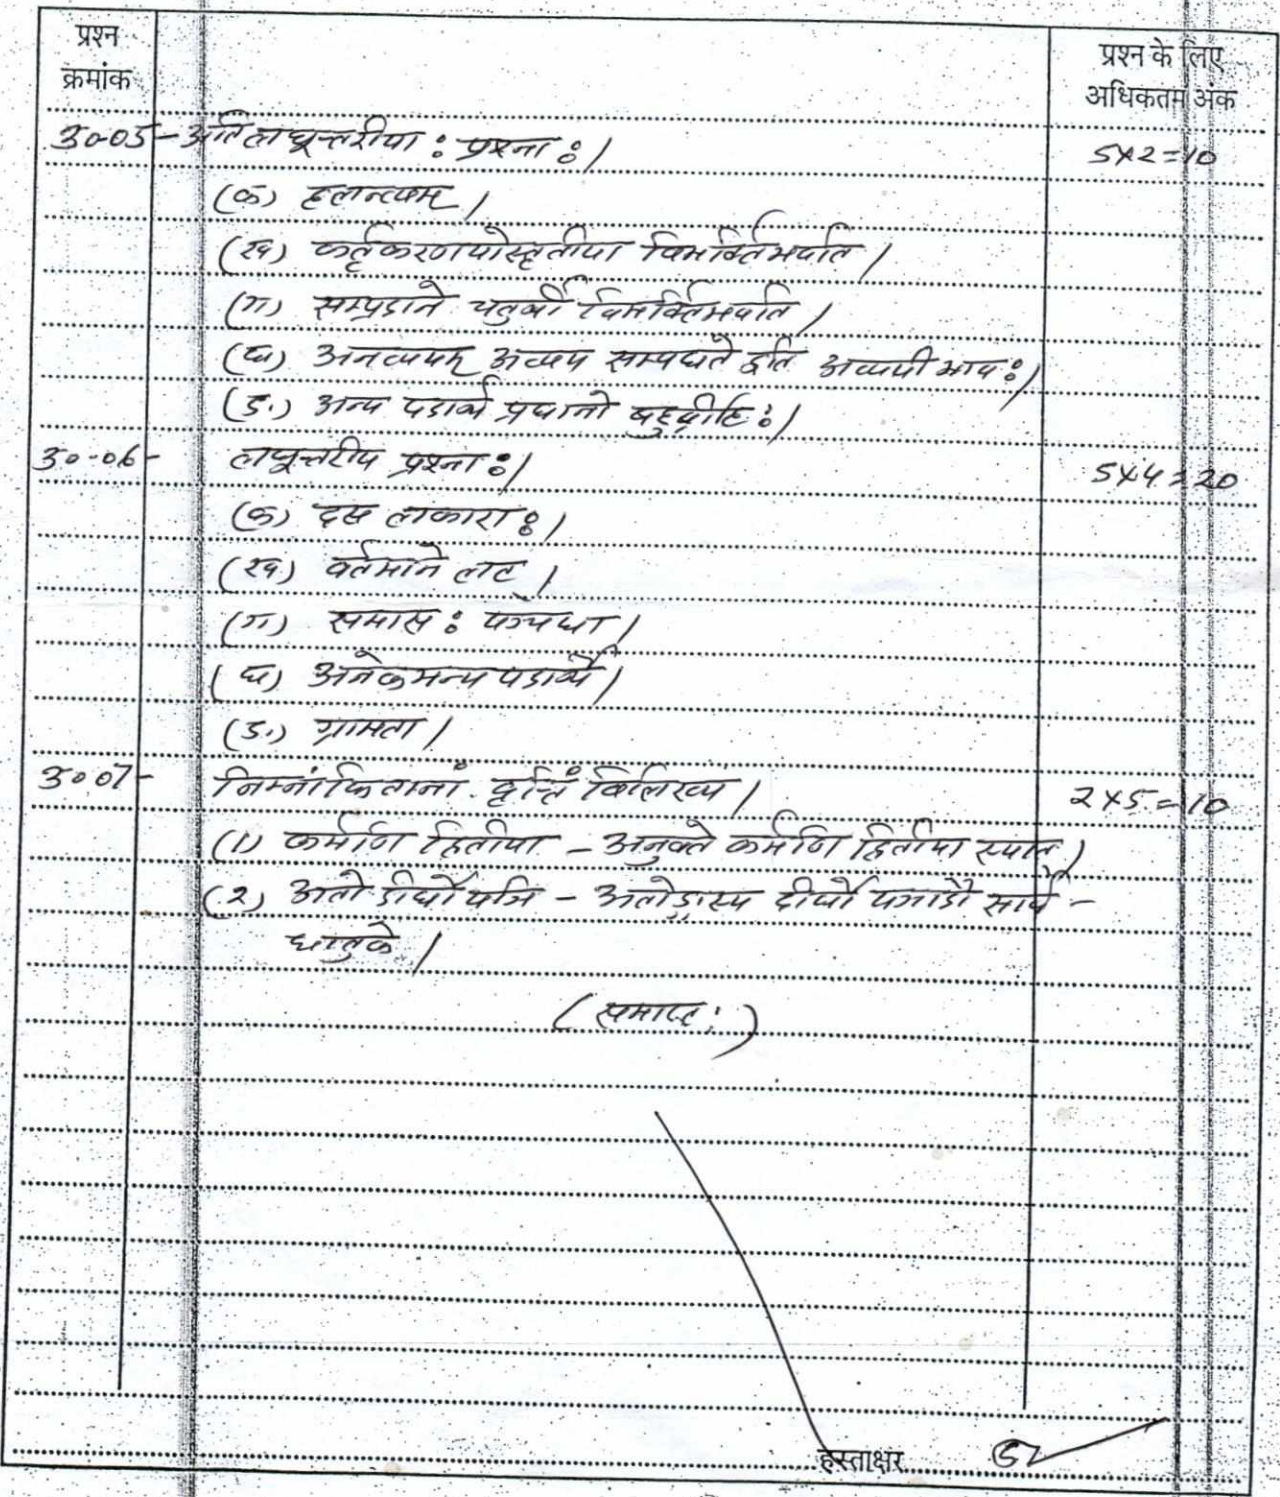 प्रश्न
क्रमांक
प्रश्न के लिए
अधिकतम अंक
उ०-05- अतिलघूत्तरीया: प्रश्ना:। 5×2=10
(क) हलन्त्यम् ।
(ख) कर्तृकरणयोस्तृतीया विभक्तिर्भवति ।
(ग) सम्प्रदाने चतुर्थी विभक्तिर्भवति ।
(घ) अनव्ययम् अव्यय सम्पद्यते इति अव्ययीभाव:।
(ङ.) अन्य पदार्थ प्रधानो बहुव्रीहि:।
उ०-06- लघूत्तरीय प्रश्ना:। 5×4=20
(क) दस लकारा:।
(ख) वर्तमाने लट् ।
(ग) समास: पञ्चधा ।
(घ) अनेकमन्यपदार्थे ।
(ङ.) ग्रामता ।
उ०.07- निम्नांकितानां वृत्तिं विलिख्य । 2×5=10
(1) कर्मणि द्वितीया - अनुक्ते कर्मणि द्वितीया स्यात् ।
(2) अतो दीर्घो यञि - अतोङ्गस्य दीर्घो यञादौ सार्व-
धातुके ।
(समाप्त:)
हस्ताक्षर